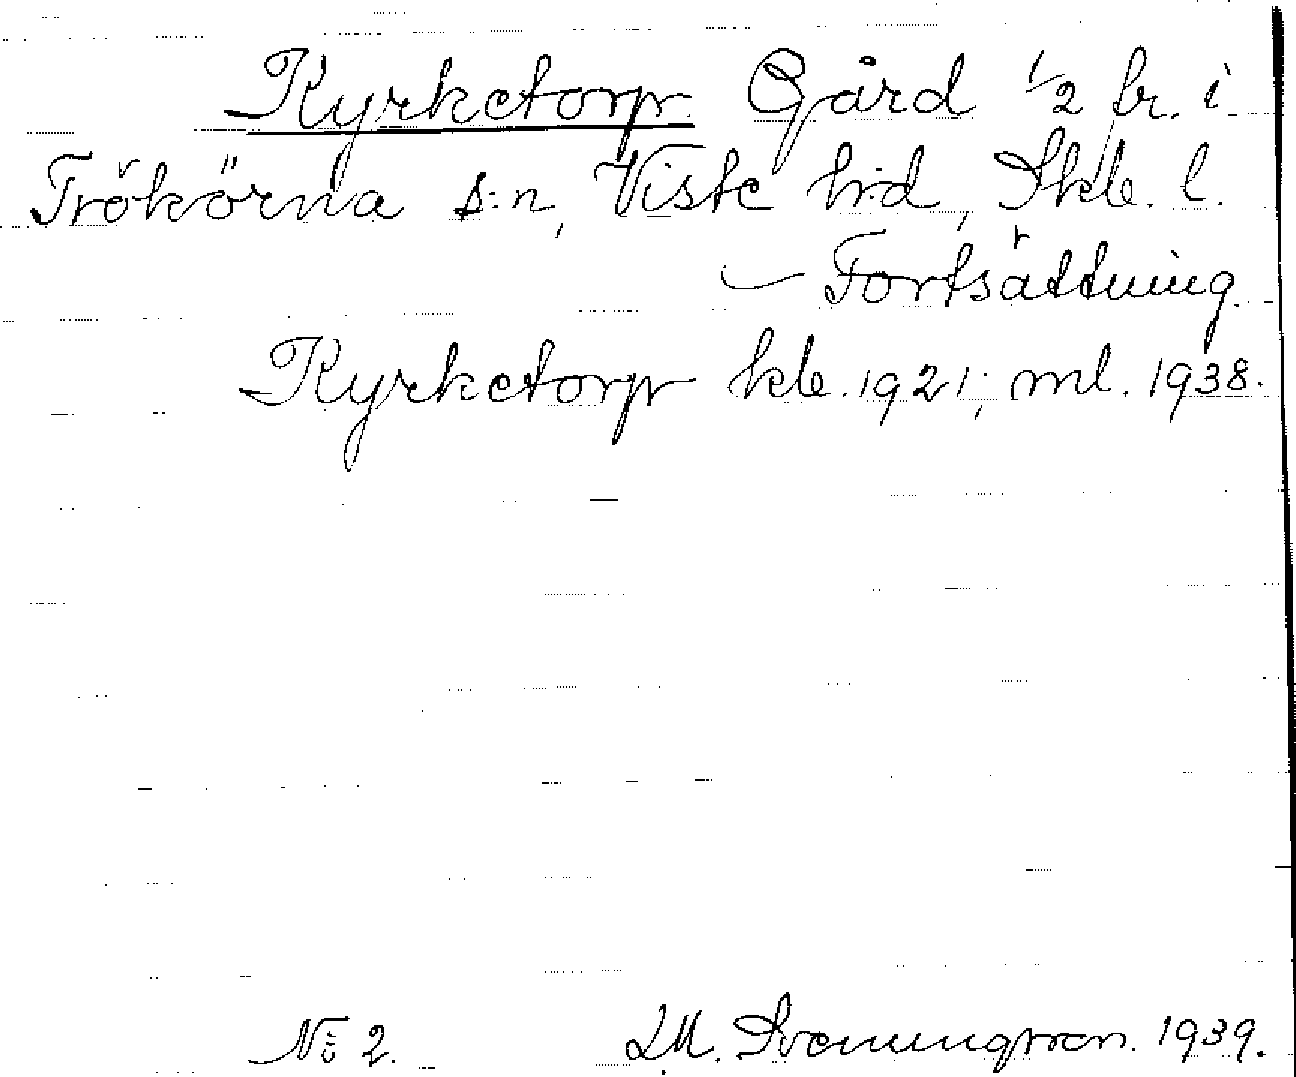 Kyrketorp Gård 1/2 br. i
Trökörna s:n, Viste h:d, Skb. l.
— Fortsättning.
Kyrketorp kb. 1921; ml. 1938.
No 2. D.M. Svenungsson. 1939.